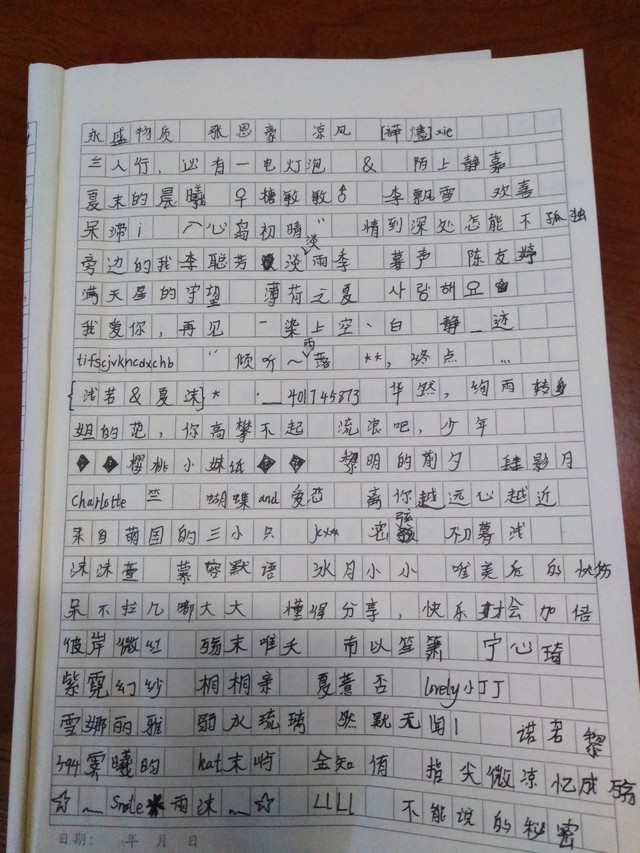 永盛物质 张思豪 凉风 [禅熺]xie
三人行，必有一电灯泡 & 陌上静嘉
夏末的晨曦 ♀糖敏敏♂ 李飘雪 欢喜
呆滞i 心岛初晴" 情到深处怎能不孤独
旁边的我李聪芳 淡淡雨季 暮声 陈友婷
满天星的守望 薄荷之夏 사랑해요
我爱你，再见 染上空、白 静_迹
tifscjvkncdxchb " 倾听~雨落 **，终点 …
{浅若&夏沫}* ·__401745873 华然，绚雨转身
姐的范，你高攀不起 流浪吧，少年
◆◆樱桃小妹纸◆◆ 黎明的前夕 肆影月
Charlotte 竺 蝴蝶and爱恋 离你越远心越近
来自萌国的三小只 弦 初暮浅
沫沫查 慕容默语 冰月小小 唯美后的快伤
呆不拉几嘟大大 懂得分享，快乐才会加倍
彼岸微红 殇末唯夭 市以笙箫 宁心琦
紫霓幻纱 桐桐亲 夏蔷否 lovely小丁丁
雪娜丽雅 弱水琉璃 默无闻| 诺若黎
394雾曦的 kat末屿 金知侑 指尖微凉忆成殇
☆﹏Smile*雨沫﹏☆ LLLL 不能说的秘密
日期： 年 月 日